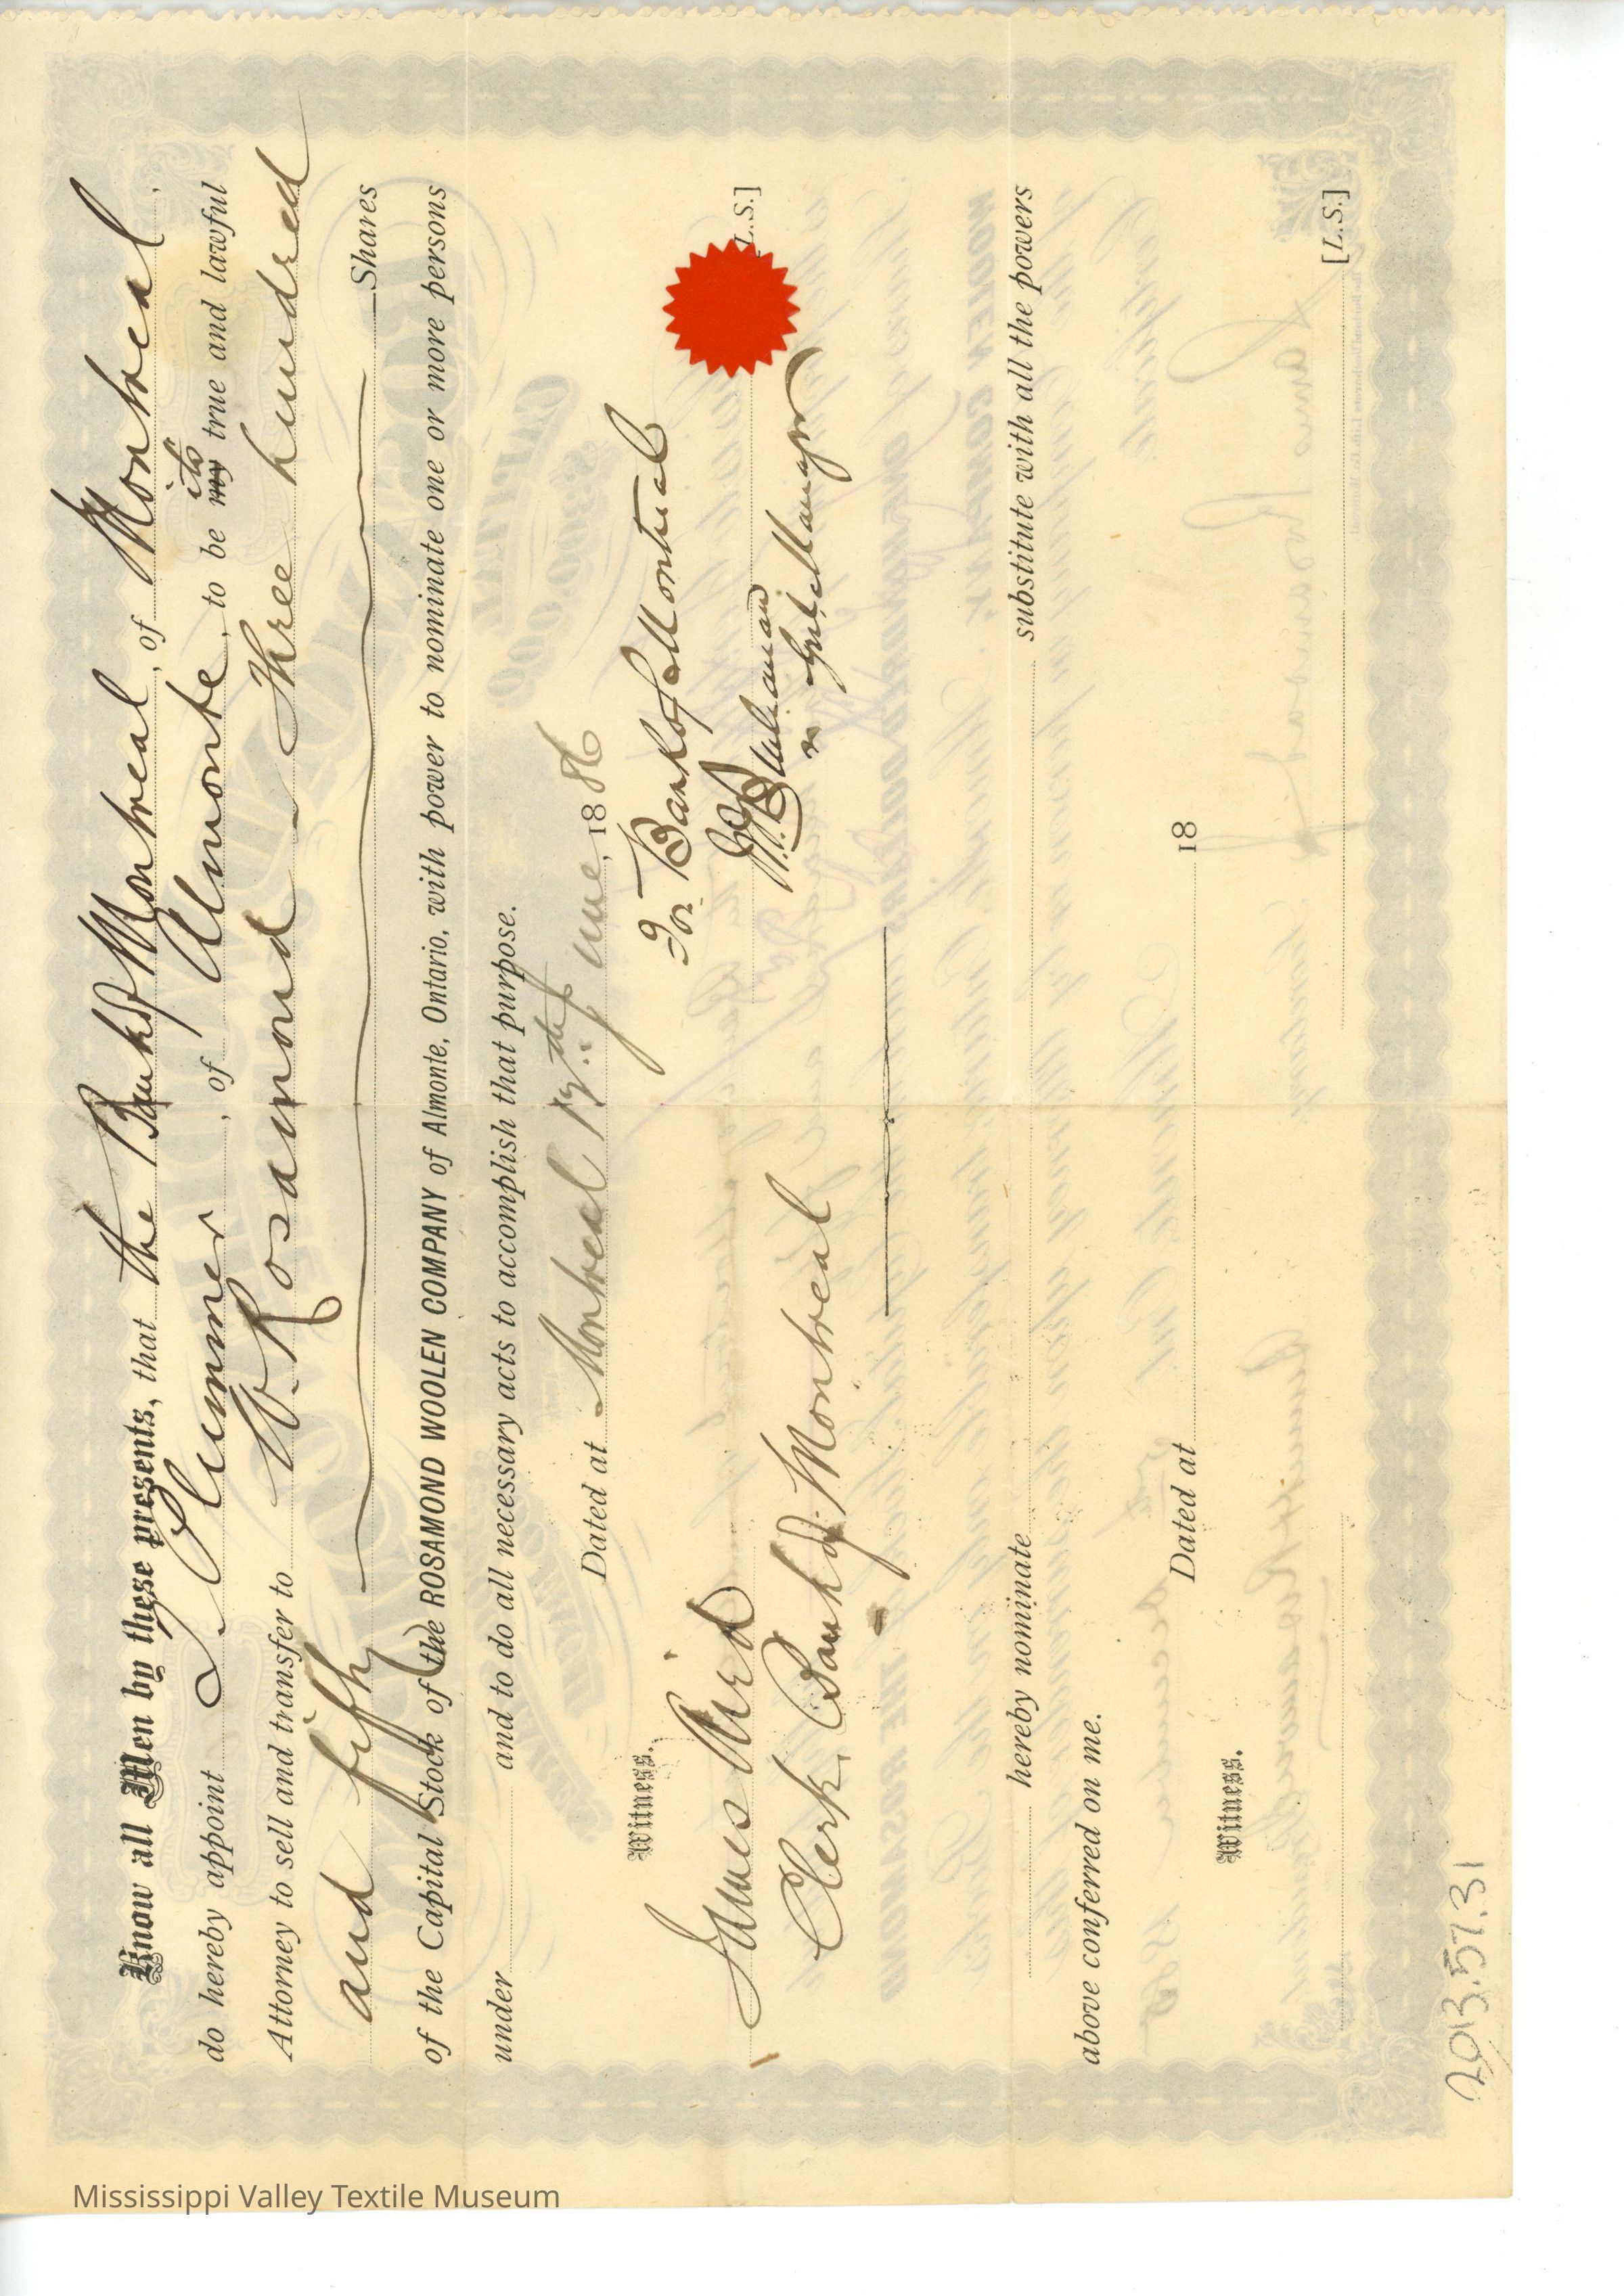 Know all Men by these presents, that the Bank of Montreal, of Montreal,
do hereby appoint J Plummer, of Almonte, to be my its true and lawful
Attorney to sell and transfer to W. Rosamond Three hundred
and fifty Shares
of the Capital Stock of the ROSAMOND WOOLEN COMPANY of Almonte, Ontario, with power to nominate one or more persons
under and to do all necessary acts to accomplish that purpose.
Dated at Montreal 17th June, 1886
Witness. For Bank of Montreal
James Reid [L.S.]
Clerk, Bank of Montreal Genl Manager
hereby nominate substitute with all the powers
above conferred on me.
Dated at 18
Witness.
[L.S.]
2013.57.31
Mississippi Valley Textile Museum